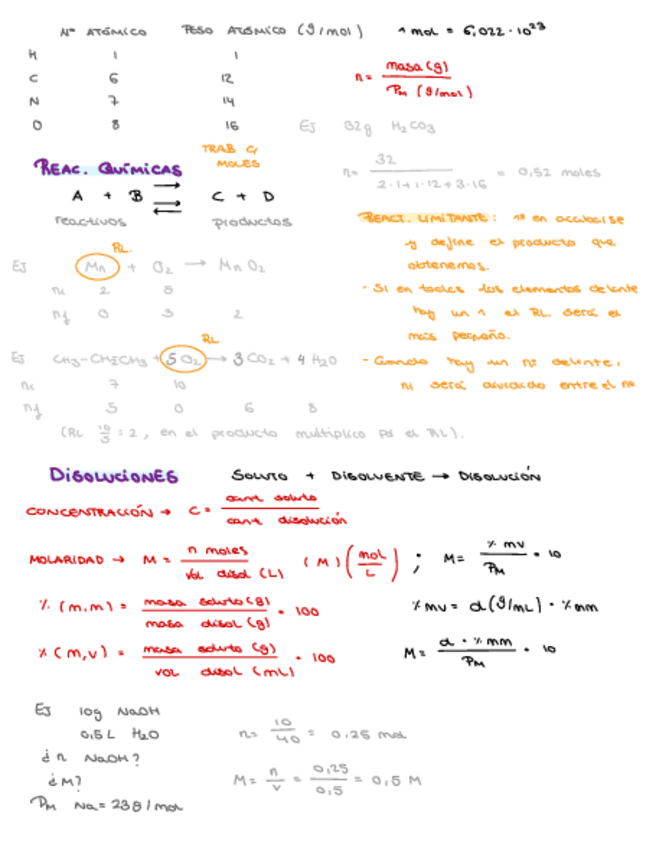 Nº ATÓMICO PESO ATÓMICO (g/mol) 1 mol = 6,022·10²³
H 1 1
C 6 12
N 7 14
O 8 16
n = masa (g) / PM (g/mol)
Ej 32g H₂CO₃
n = 32 / 2·1+1·12+3·16 = 0,52 moles
REAC. QUÍMICAS TRAB C/ MOLES
A + B ⇄ C + D
reactivos productos
REACT. LIMITANTE: 1º en acabarse
y define el producto que
obtenemos.
- Si en todos los elementos delante
hay un 1 el RL. será el
más pequeño.
- Cuando hay un nº delante,
ni será dividido entre el nº
RL.
Ej Mn + O₂ → MnO₂
ni 2 5
nf 0 3 2
RL
Ej CH₃-CH₂CH₃ + 5O₂ → 3CO₂ + 4H₂O
ni 7 10
nf 5 0 6 8
(RL 10/5 = 2, en el producto multiplico por el RL).
DISOLUCIONES SOLUTO + DISOLVENTE → DISOLUCIÓN
CONCENTRACIÓN → C = cant soluto / cant disolución
MOLARIDAD → M = n moles / vol disol (L) (M) (mol/L) ; M = % mv / PM · 10
% (m,m) = masa soluto (g) / masa disol (g) · 100 % mv = d (g/mL) · % mm
% (m,v) = masa soluto (g) / vol disol (mL) · 100 M = d · % mm / PM · 10
Ej 10g NaOH
0,5L H₂O n = 10/40 = 0,25 mol
¿n NaOH?
¿M? M = n/v = 0,25/0,5 = 0,5 M
PM Na = 23g/mol